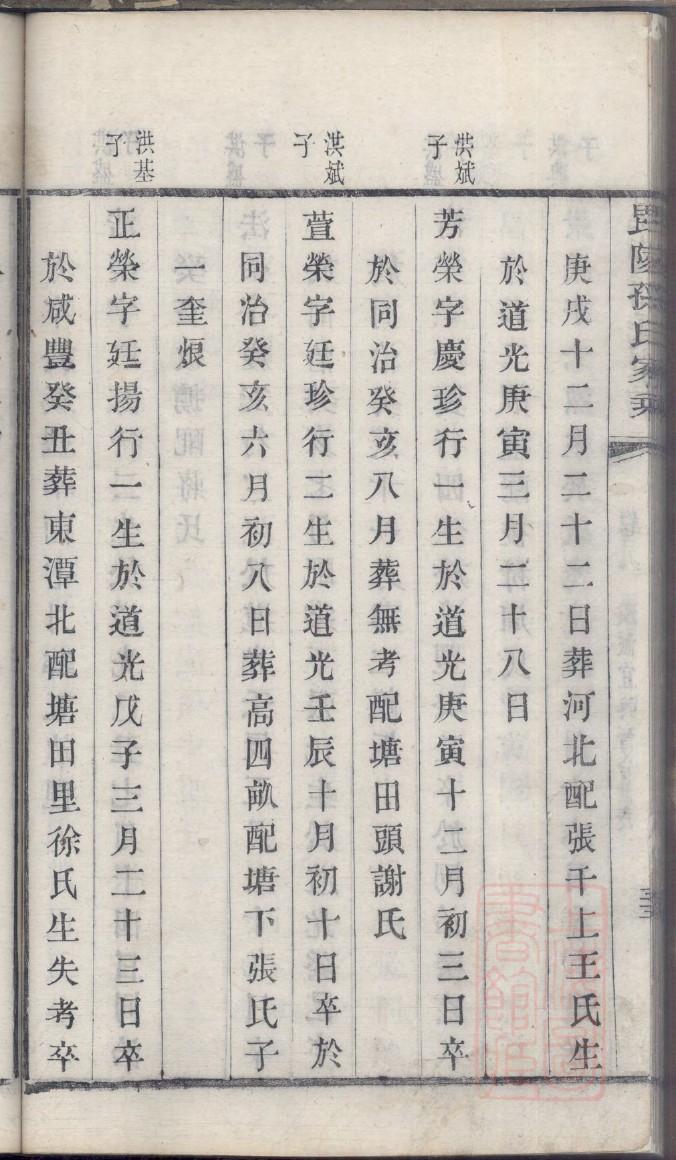 毘陵孫氏家乘
庚戌十二月二十二日葬河北配張千上王氏生
於道光庚寅三月二十八日
洪斌子
芳榮字慶珍行一生於道光庚寅十二月初三日卒
於同治癸亥八月葬無考配塘田頭謝氏
淇斌子
萱榮字廷珍行二生於道光壬辰十月初十日卒於
同治癸亥六月初八日葬高四畝配塘下張氏子
一奎烺
洪基子
正榮字廷揚行一生於道光戊子三月二十三日卒
於咸豐癸丑葬東潭北配塘田里徐氏生失考卒